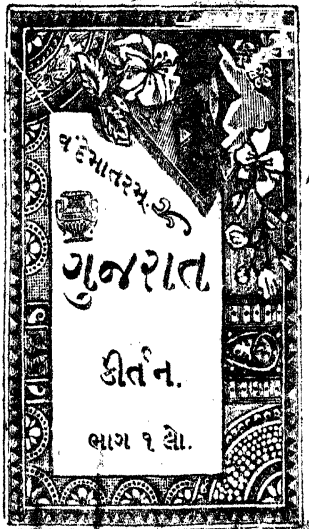 વંદેમાતરમ્.
ગુજરાત
કીર્તન.
ભાગ ૧ લો.